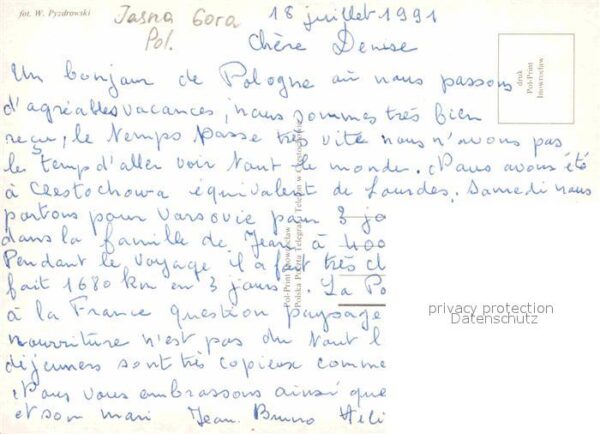 fot. W. Pyzdrowski
Jasna Gora
Pol.
18 juillet 1991
Chère Denise
Un bonjour de Pologne où nous passons
d'agréables vacances, nous sommes très bien
reçu, le temps passe très vite nous n'avons pas
le temp d'aller voir tout le monde. Nous avons été
à Czestochowa équivalent de Lourdes. Samedi nous
partons pour Varsovie pour 3 jo
dans la famille de Jean à 400
Pendant le voyage il a fait très ch
fait 1680 km en 3 jours. La Po
à la France question paysage
nourriture n'est pas du tout l
déjeuners sont très copieux comme
Nous vous embrassons ainsi que
et son mari Jean Bruno Héli
druk
Pol-Print
Inowrocław
Pol-Print Inowrocław
Polska Poczta Telegraf i Telefon w
privacy protection
Datenschutz